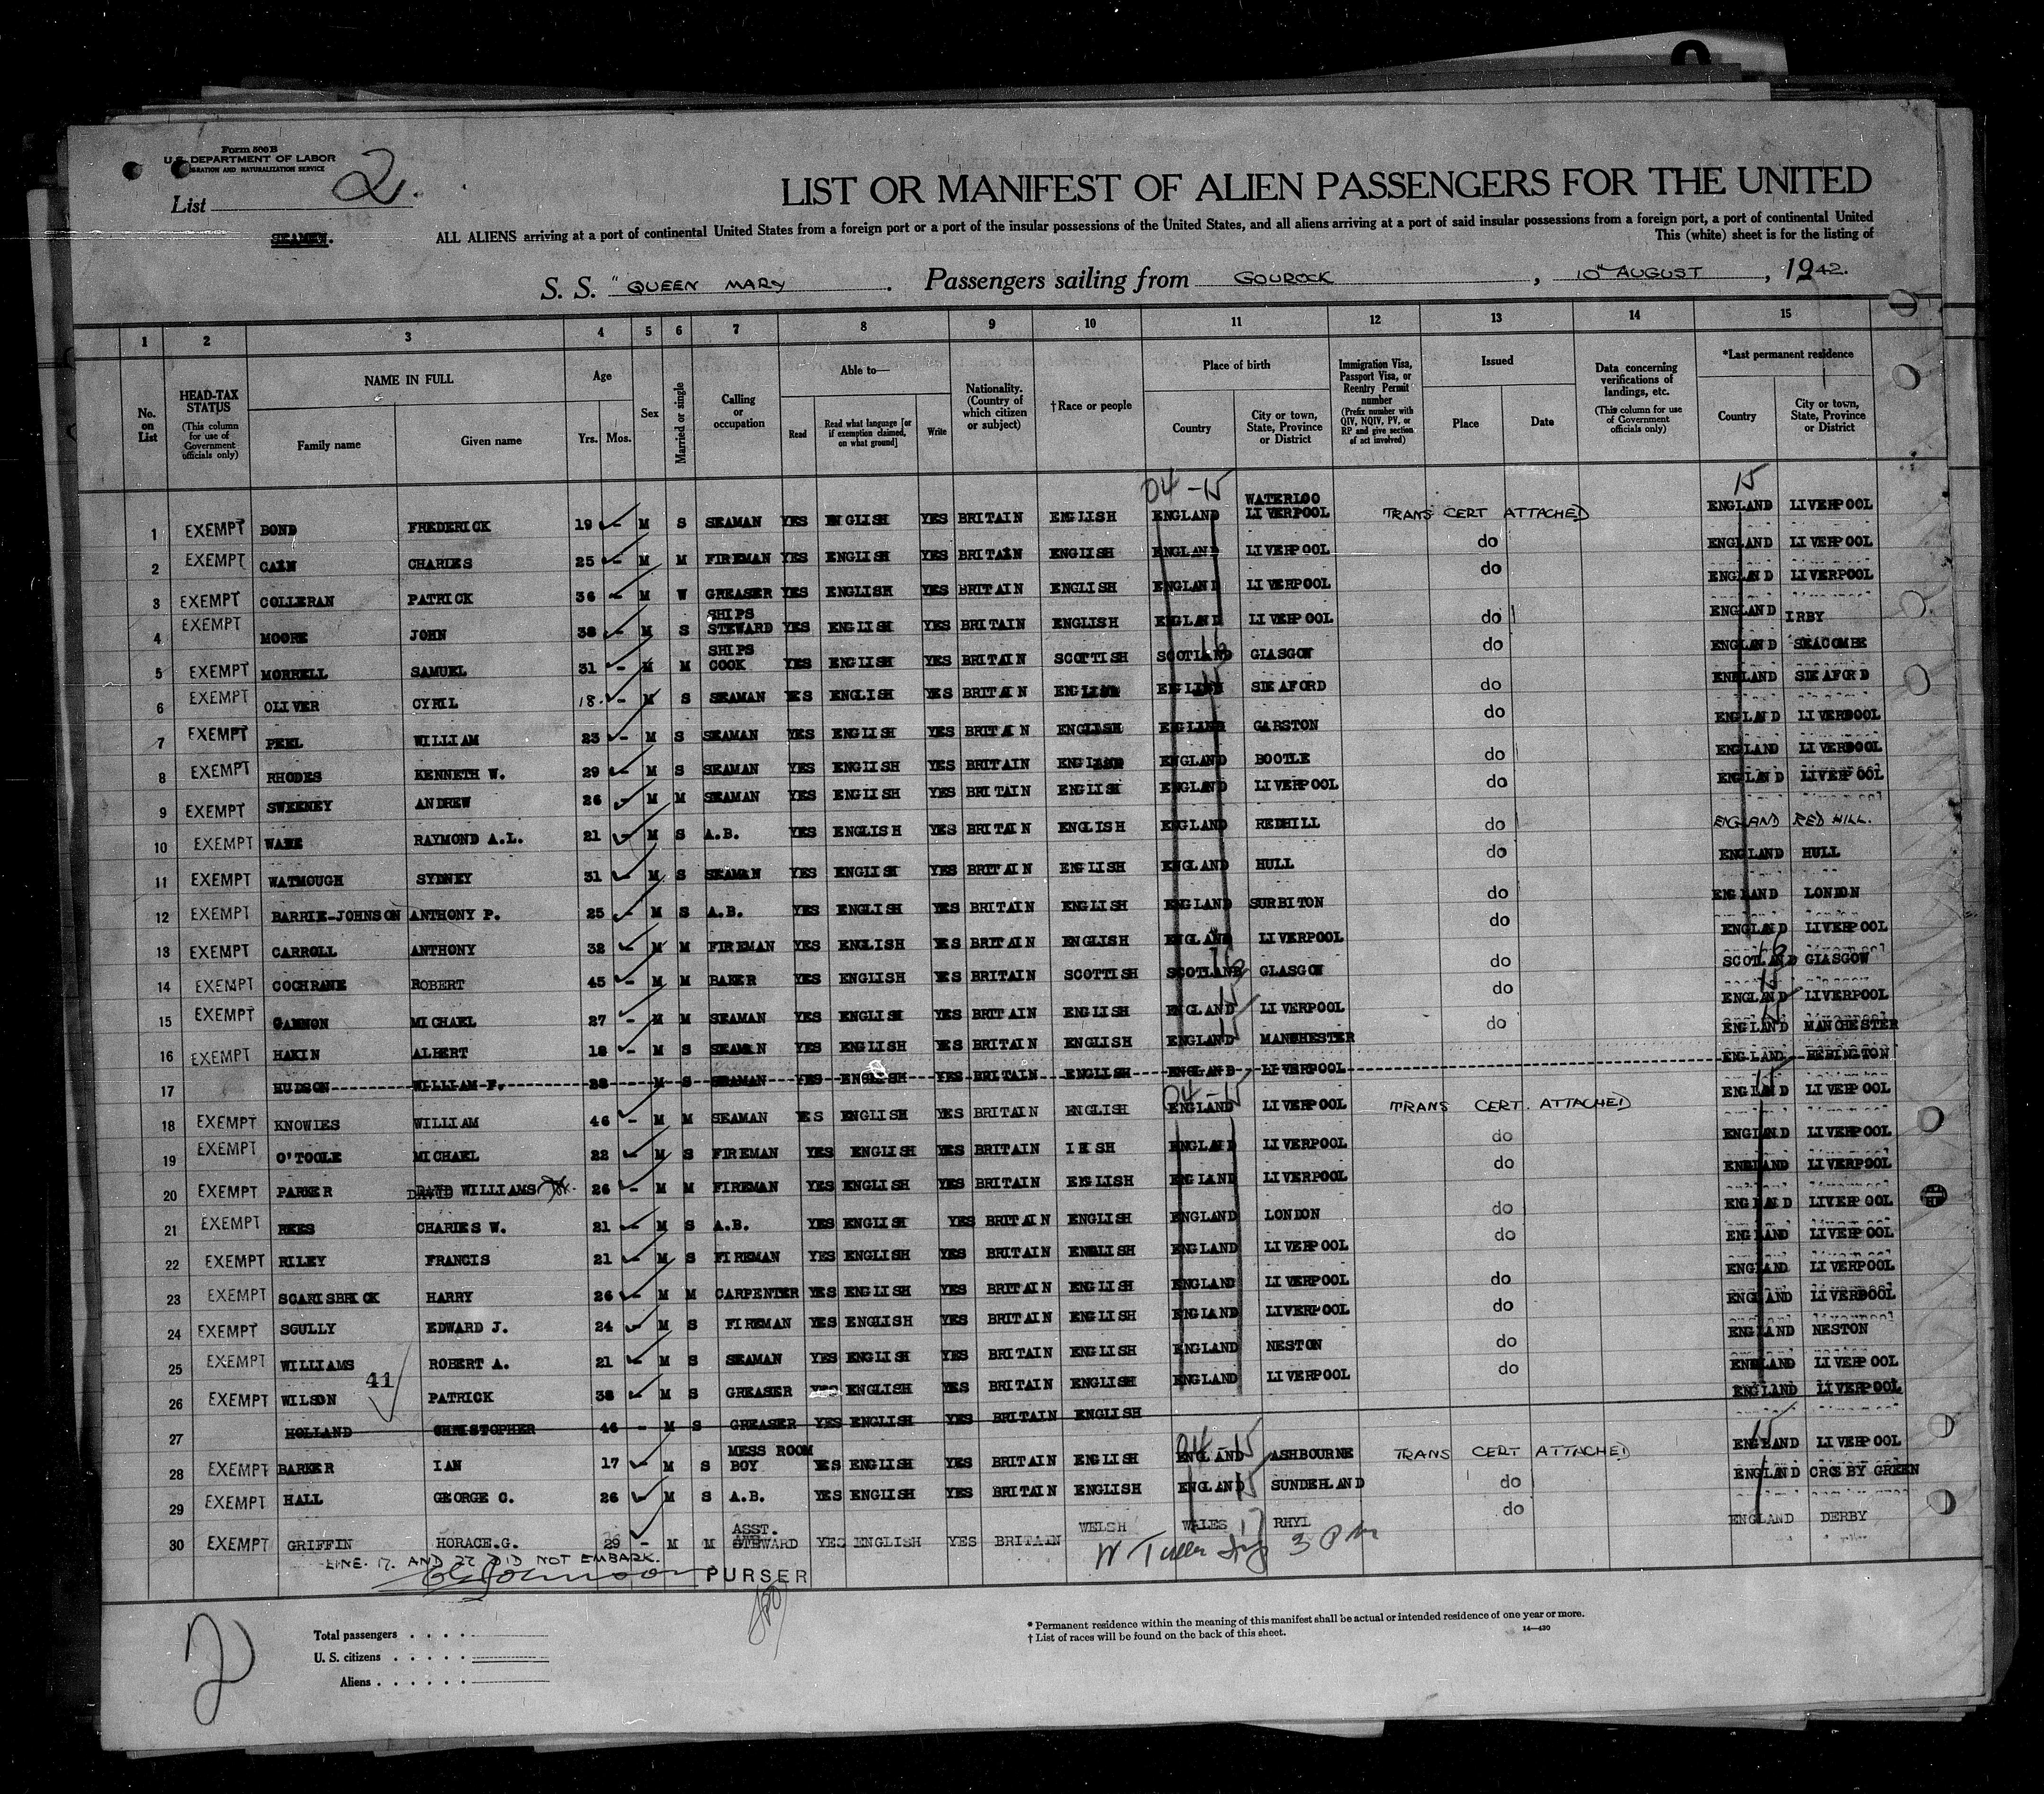 Form 500 B
U.S. DEPARTMENT OF LABOR
IGRATION AND NATURALIZATION SERVICE
List 2.
SEAMEN.
LIST OR MANIFEST OF ALIEN PASSENGERS FOR THE UNITED
ALL ALIENS arriving at a port of continental United States from a foreign port or a port of the insular possessions of the United States, and all aliens arriving at a port of said insular possessions from a foreign port, a port of continental United
This (white) sheet is for the listing of
S. S. "QUEEN MARY. Passengers sailing from GOUROCK, 10TH AUGUST, 1942.
1 2 3 4 5 6 7 8 9 10 11 12 13 14 15
No. on List
HEAD-TAX STATUS (This column for use of Government officials only)
NAME IN FULL
Family name Given name
Age
Yrs. Mos.
Sex
Married or single
Calling or occupation
Able to—
Read
Read what language [or if exemption claimed, on what ground]
Write
Nationality. (Country of which citizen or subject)
†Race or people
Place of birth
Country
City or town, State, Province or District
Immigration Visa, Passport Visa, or Reentry Permit number (Prefix number with QIV, NQIV, PV, or RP and give section of act involved)
Issued
Place Date
Data concerning verifications of landings, etc. (This column for use of Government officials only)
*Last permanent residence
Country
City or town, State, Province or District
04 - 15 15
1 EXEMPT BOND FREDERICK 19 - M S SEAMAN YES ENGLISH YES BRITAIN ENGLISH ENGLAND WATERLOO LIVERPOOL TRANS CERT ATTACHED ENGLAND LIVERPOOL
2 EXEMPT CAIN CHARLES 25 - M M FIREMAN YES ENGLISH YES BRITAIN ENGLISH ENGLAND LIVERPOOL do ENGLAND LIVERPOOL
3 EXEMPT COLLERAN PATRICK 36 - M W GREASER YES ENGLISH YES BRITAIN ENGLISH ENGLAND LIVERPOOL do ENGLAND LIVERPOOL
4 EXEMPT MOORE JOHN 38 - M S SHIPS STEWARD YES ENGLISH YES BRITAIN ENGLISH ENGLAND LIVERPOOL do ENGLAND IRBY
5 EXEMPT MORRELL SAMUEL 31 - M M SHIPS COOK YES ENGLISH YES BRITAIN SCOTTISH SCOTLAND GLASGOW do ENGLAND SEACOMBE
6 EXEMPT OLIVER CYRIL 18 - M S SEAMAN YES ENGLISH YES BRITAIN ENGLISH ENGLAND SLEAFORD do ENGLAND SLEAFORD
7 EXEMPT PEEL WILLIAM 23 - M S SEAMAN YES ENGLISH YES BRITAIN ENGLISH ENGLAND GARSTON do ENGLAND LIVERPOOL
8 EXEMPT RHODES KENNETH W. 29 - M S SEAMAN YES ENGLISH YES BRITAIN ENGLISH ENGLAND BOOTLE do ENGLAND LIVERPOOL
9 EXEMPT SWEENEY ANDREW 26 - M M SEAMAN YES ENGLISH YES BRITAIN ENGLISH ENGLAND LIVERPOOL do ENGLAND LIVERPOOL
10 EXEMPT WARE RAYMOND A.L. 21 - M S A.B. YES ENGLISH YES BRITAIN ENGLISH ENGLAND REDHILL do ENGLAND RED HILL.
11 EXEMPT WATMOUGH SYDNEY 31 - M S SEAMAN YES ENGLISH YES BRITAIN ENGLISH ENGLAND HULL do ENGLAND HULL
12 EXEMPT BARRIE-JOHNSON ANTHONY P. 25 - M S A.B. YES ENGLISH YES BRITAIN ENGLISH ENGLAND SURBITON do ENGLAND LONDON
13 EXEMPT CARROLL ANTHONY 32 - M M FIREMAN YES ENGLISH YES BRITAIN ENGLISH ENGLAND LIVERPOOL do ENGLAND LIVERPOOL
14 EXEMPT COCHRANE ROBERT 45 - M M BAKER YES ENGLISH YES BRITAIN SCOTTISH SCOTLAND GLASGOW do SCOTLAND GLASGOW
15 EXEMPT GANNON MICHAEL 27 - M M SEAMAN YES ENGLISH YES BRITAIN ENGLISH ENGLAND LIVERPOOL do ENGLAND LIVERPOOL
16 EXEMPT HAKIN ALBERT 18 - M S SEAMAN YES ENGLISH YES BRITAIN ENGLISH ENGLAND MANCHESTER do ENGLAND MANCHESTER
17 HUDSON WILLIAM F. 28 M S SEAMAN YES ENGLISH YES BRITAIN ENGLISH ENGLAND LIVERPOOL ENGLAND BEBINGTON
18 EXEMPT KNOWLES WILLIAM 46 - M M SEAMAN YES ENGLISH YES BRITAIN ENGLISH ENGLAND LIVERPOOL TRANS CERT. ATTACHED ENGLAND LIVERPOOL
19 EXEMPT O'TOOLE MICHAEL 22 - M S FIREMAN YES ENGLISH YES BRITAIN IRISH ENGLAND LIVERPOOL do ENGLAND LIVERPOOL
20 EXEMPT PARKER DAVID WILLIAMS 26 - M M FIREMAN YES ENGLISH YES BRITAIN ENGLISH ENGLAND LIVERPOOL do ENGLAND LIVERPOOL
21 EXEMPT REES CHARLES W. 21 - M S A.B. YES ENGLISH YES BRITAIN ENGLISH ENGLAND LONDON do ENGLAND LIVERPOOL
22 EXEMPT RILEY FRANCIS 21 - M S FIREMAN YES ENGLISH YES BRITAIN ENGLISH ENGLAND LIVERPOOL do ENGLAND LIVERPOOL
23 EXEMPT SCARISBRICK HARRY 26 - M M CARPENTER YES ENGLISH YES BRITAIN ENGLISH ENGLAND LIVERPOOL do ENGLAND LIVERPOOL
24 EXEMPT SCULLY EDWARD J. 24 - M S FIREMAN YES ENGLISH YES BRITAIN ENGLISH ENGLAND LIVERPOOL do ENGLAND LIVERPOOL
25 EXEMPT WILLIAMS ROBERT A. 21 - M S SEAMAN YES ENGLISH YES BRITAIN ENGLISH ENGLAND NESTON do ENGLAND NESTON
26 EXEMPT WILSON 41 PATRICK 38 - M S GREASER YES ENGLISH YES BRITAIN ENGLISH ENGLAND LIVERPOOL do ENGLAND LIVERPOOL
27 HOLLAND CHRISTOPHER 46 - M S GREASER YES ENGLISH YES BRITAIN ENGLISH ENGLAND LIVERPOOL
28 EXEMPT BARKER IAN 17 - M S MESS ROOM BOY YES ENGLISH YES BRITAIN ENGLISH ENGLAND ASHBOURNE TRANS CERT ATTACHED ENGLAND LIVERPOOL
29 EXEMPT HALL GEORGE C. 26 - M S A.B. YES ENGLISH YES BRITAIN ENGLISH ENGLAND SUNDERLAND do ENGLAND CROSBY GREEN
30 EXEMPT GRIFFIN HORACE.G. 29 - M M ASST. STEWARD YES ENGLISH YES BRITAIN WELSH WALES RHYL do ENGLAND DERBY
LINE. 17. AND 27 DID NOT EMBARK.
PURSER
2
Total passengers
U. S. citizens
Aliens
* Permanent residence within the meaning of this manifest shall be actual or intended residence of one year or more.
† List of races will be found on the back of this sheet.
14—420